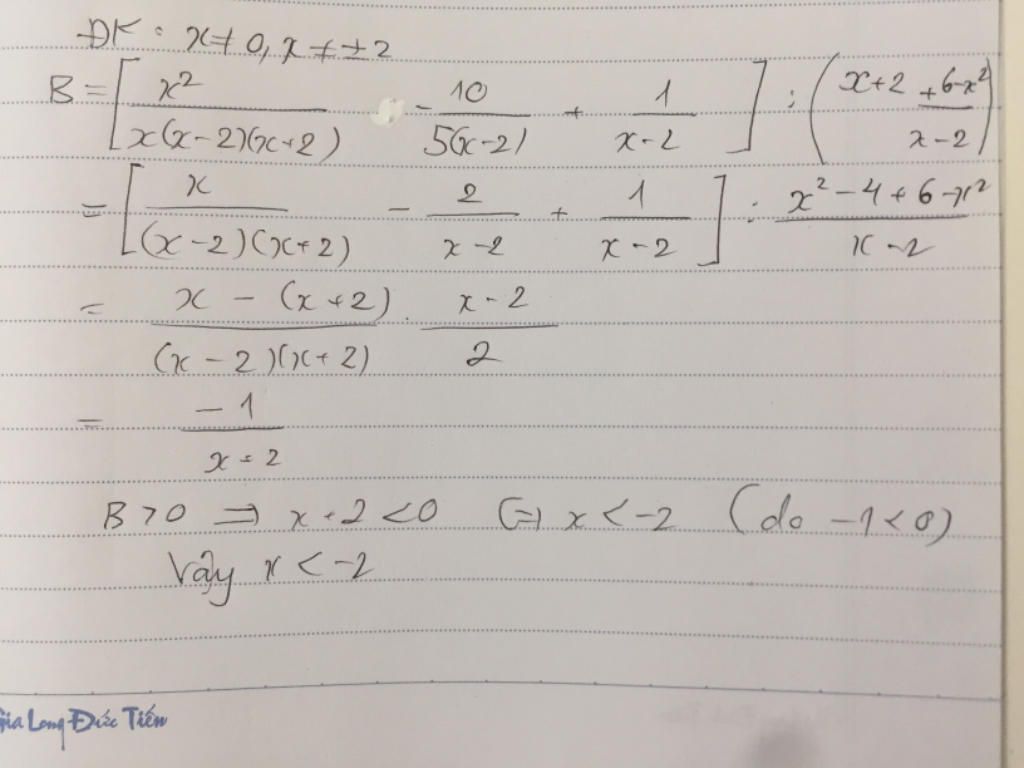 ĐK : x ≠ 0, x ≠ ±2
B = [ x² / x(x-2)(x+2) - 10 / 5(x-2) + 1 / x-2 ] : ( x+2 + 6-x² / x-2 )
= [ x / (x-2)(x+2) - 2 / x-2 + 1 / x-2 ] : x² - 4 + 6 - x² / x-2
= x - (x+2) / (x-2)(x+2) . x-2 / 2
= -1 / x+2
B > 0 ⇒ x+2 < 0 ⇔ x < -2 (do -1 < 0)
Vậy x < -2
Gia Long Đức Tiến